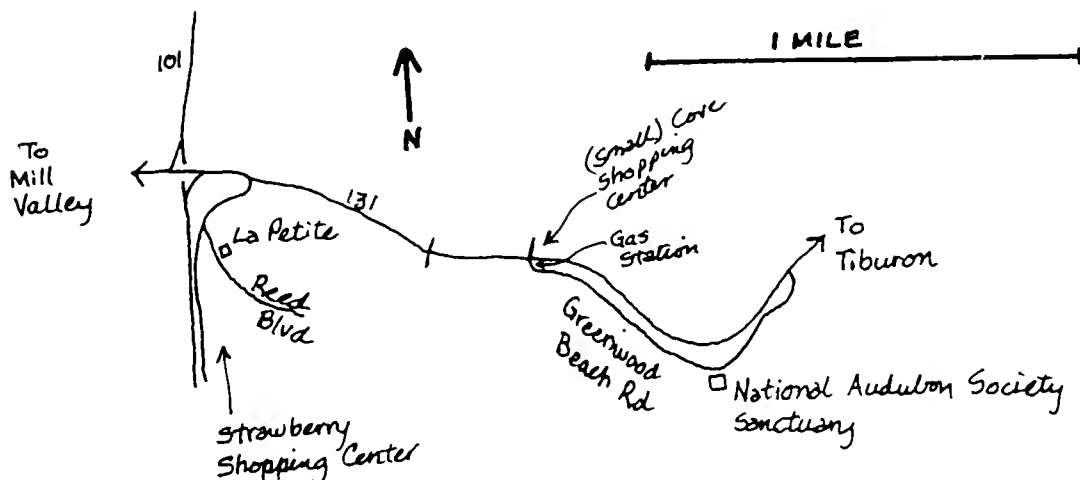 1 MILE
101
N
To
Mill
Valley
(small) Cove
Shopping
Center
131
La Petite
Gas
Station
To
Tiburon
Reed
Blvd
Greenwood
Beach Rd
National Audubon Society
Sanctuary
Strawberry
Shopping Center